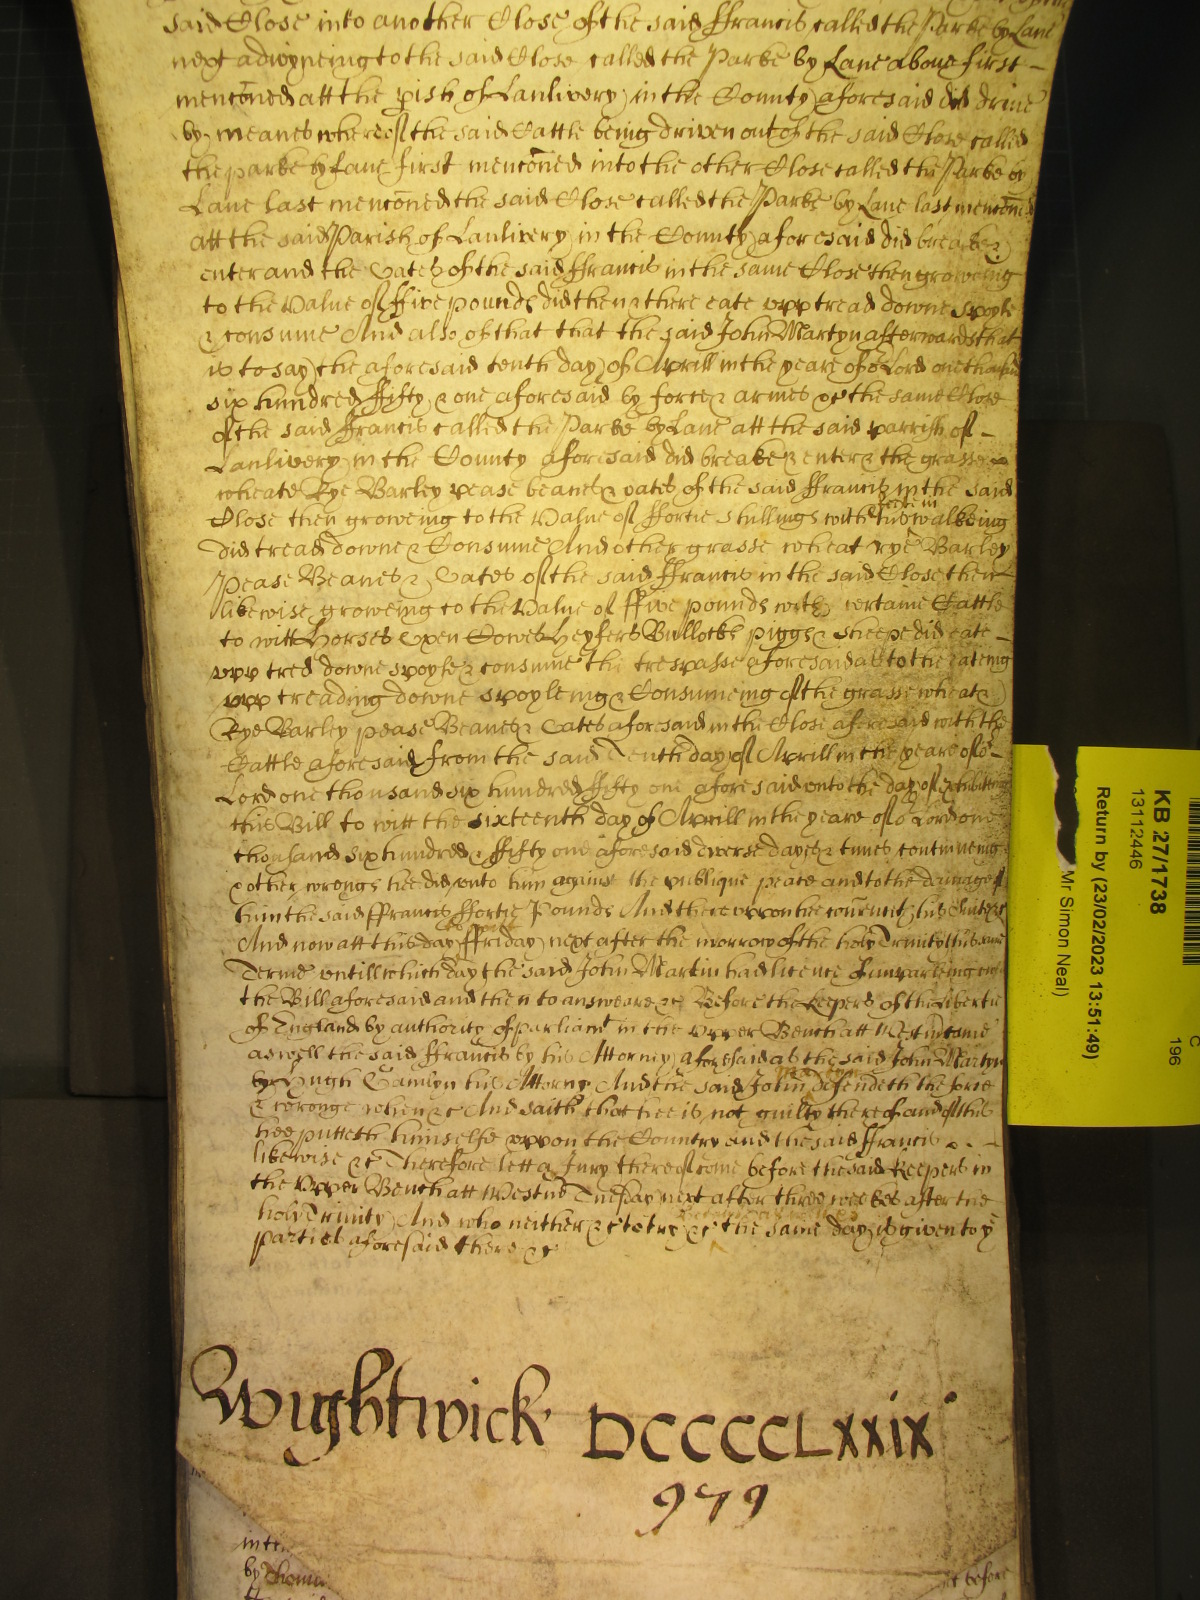 said Close into another Close of the said ffrancis called the Parke by Lane
next adioyneing to the said Close called the Parke by Lane above first
mencõned att the pish of Lanlivery in the County aforesaid did drive
by meanes whereof the said Cattle being driven out of the said Close called
the parke by Lane first mencõned into the other Close called the Parke by
Lane last mencõned the said Close called the Parke by Lane last mencõned
att the said Parish of Lanlivery in the County aforesaid did breake &
enter and the Oates of the said ffrancis in the same Close then groweing
to the value of ffive pounds did then & there eate upp tread downe spoyle
& consume And also of that that the said John Martyn afterwards that
is to say the aforesaid tenth day of Aprill in the yeare of oʳ Lord one thousand
six hundred ffifty & one aforesaid by force & armes &c the same Close
of the said ffrancis called the Parke by Lane att the said parrish of
Lanlivery in the County aforesaid did breake & enter & the grasse
wheate Rye Barley pease beanes & oates of the said ffrancis in the said
Close then groweing to the value of ffortie shillings with his feete in walkeing
did tread downe & Consume And other grasse wheat rye Barley
Pease Beanes & Oates of the said ffrancis in the said Close then
likewise groweing to the value of ffive pounds with certaine Cattle
to witt Horses Oxen Cowes Heyfers Bullocks piggs & sheepe did eate
upp tred downe spoyle & consume the trespasse aforesaid as to the eateing
upp treading downe spoyleing & Consumeing of the grasse wheat
Rye Barley pease Beanes & Oates aforesaid in the Close aforesaid with the
Cattle aforesaid from the said Tenth day of Aprill in the yeare of oʳ
Lord one thousand six hundred ffifty one aforesaid unto the day of exhibitting
this Bill to witt the sixteenth day of Aprill in the yeare of oʳ Lord one
thousand six hundred & ffifty one aforesaid diverse dayes & times continueing
& other wrongs hee did unto him against the publique peace and to the damage of
him the said ffrancis ffortie Pounds And thereuppon he
And now att this day ffriday next after the morrow of the holy Trinity this same
Terme untill which day the said John Martin had licence
the Bill aforesaid and then to answeare &c Before the keepers of the libertie
of England by authority of parliamᵗ in the upper Bench att Westm come
aswell the said ffrancis by his Attorney aforesaid as the said John Martyn
by Hugh Gamlyn his Attorny And the said John defendeth the force
& wronge when &c And saith that hee is not guilty thereof and of this
hee putteth himselfe uppon the Country and the said ffrancis
likewise &c Therefore lett a Jury thereof come before the said keepers in
the Upper Bench att Westm̃ Tuesday next after three weekes after the
holy Trinity And who neither &c to &c the same day is given to yᵉ
parties aforesaid there &c
Wightwick DCCCCLXXIX
979
by Thomas
before
KB 27/1738
13112446
Return by (23/02/2023 13:51:49)
Mr Simon Neal)
C
196